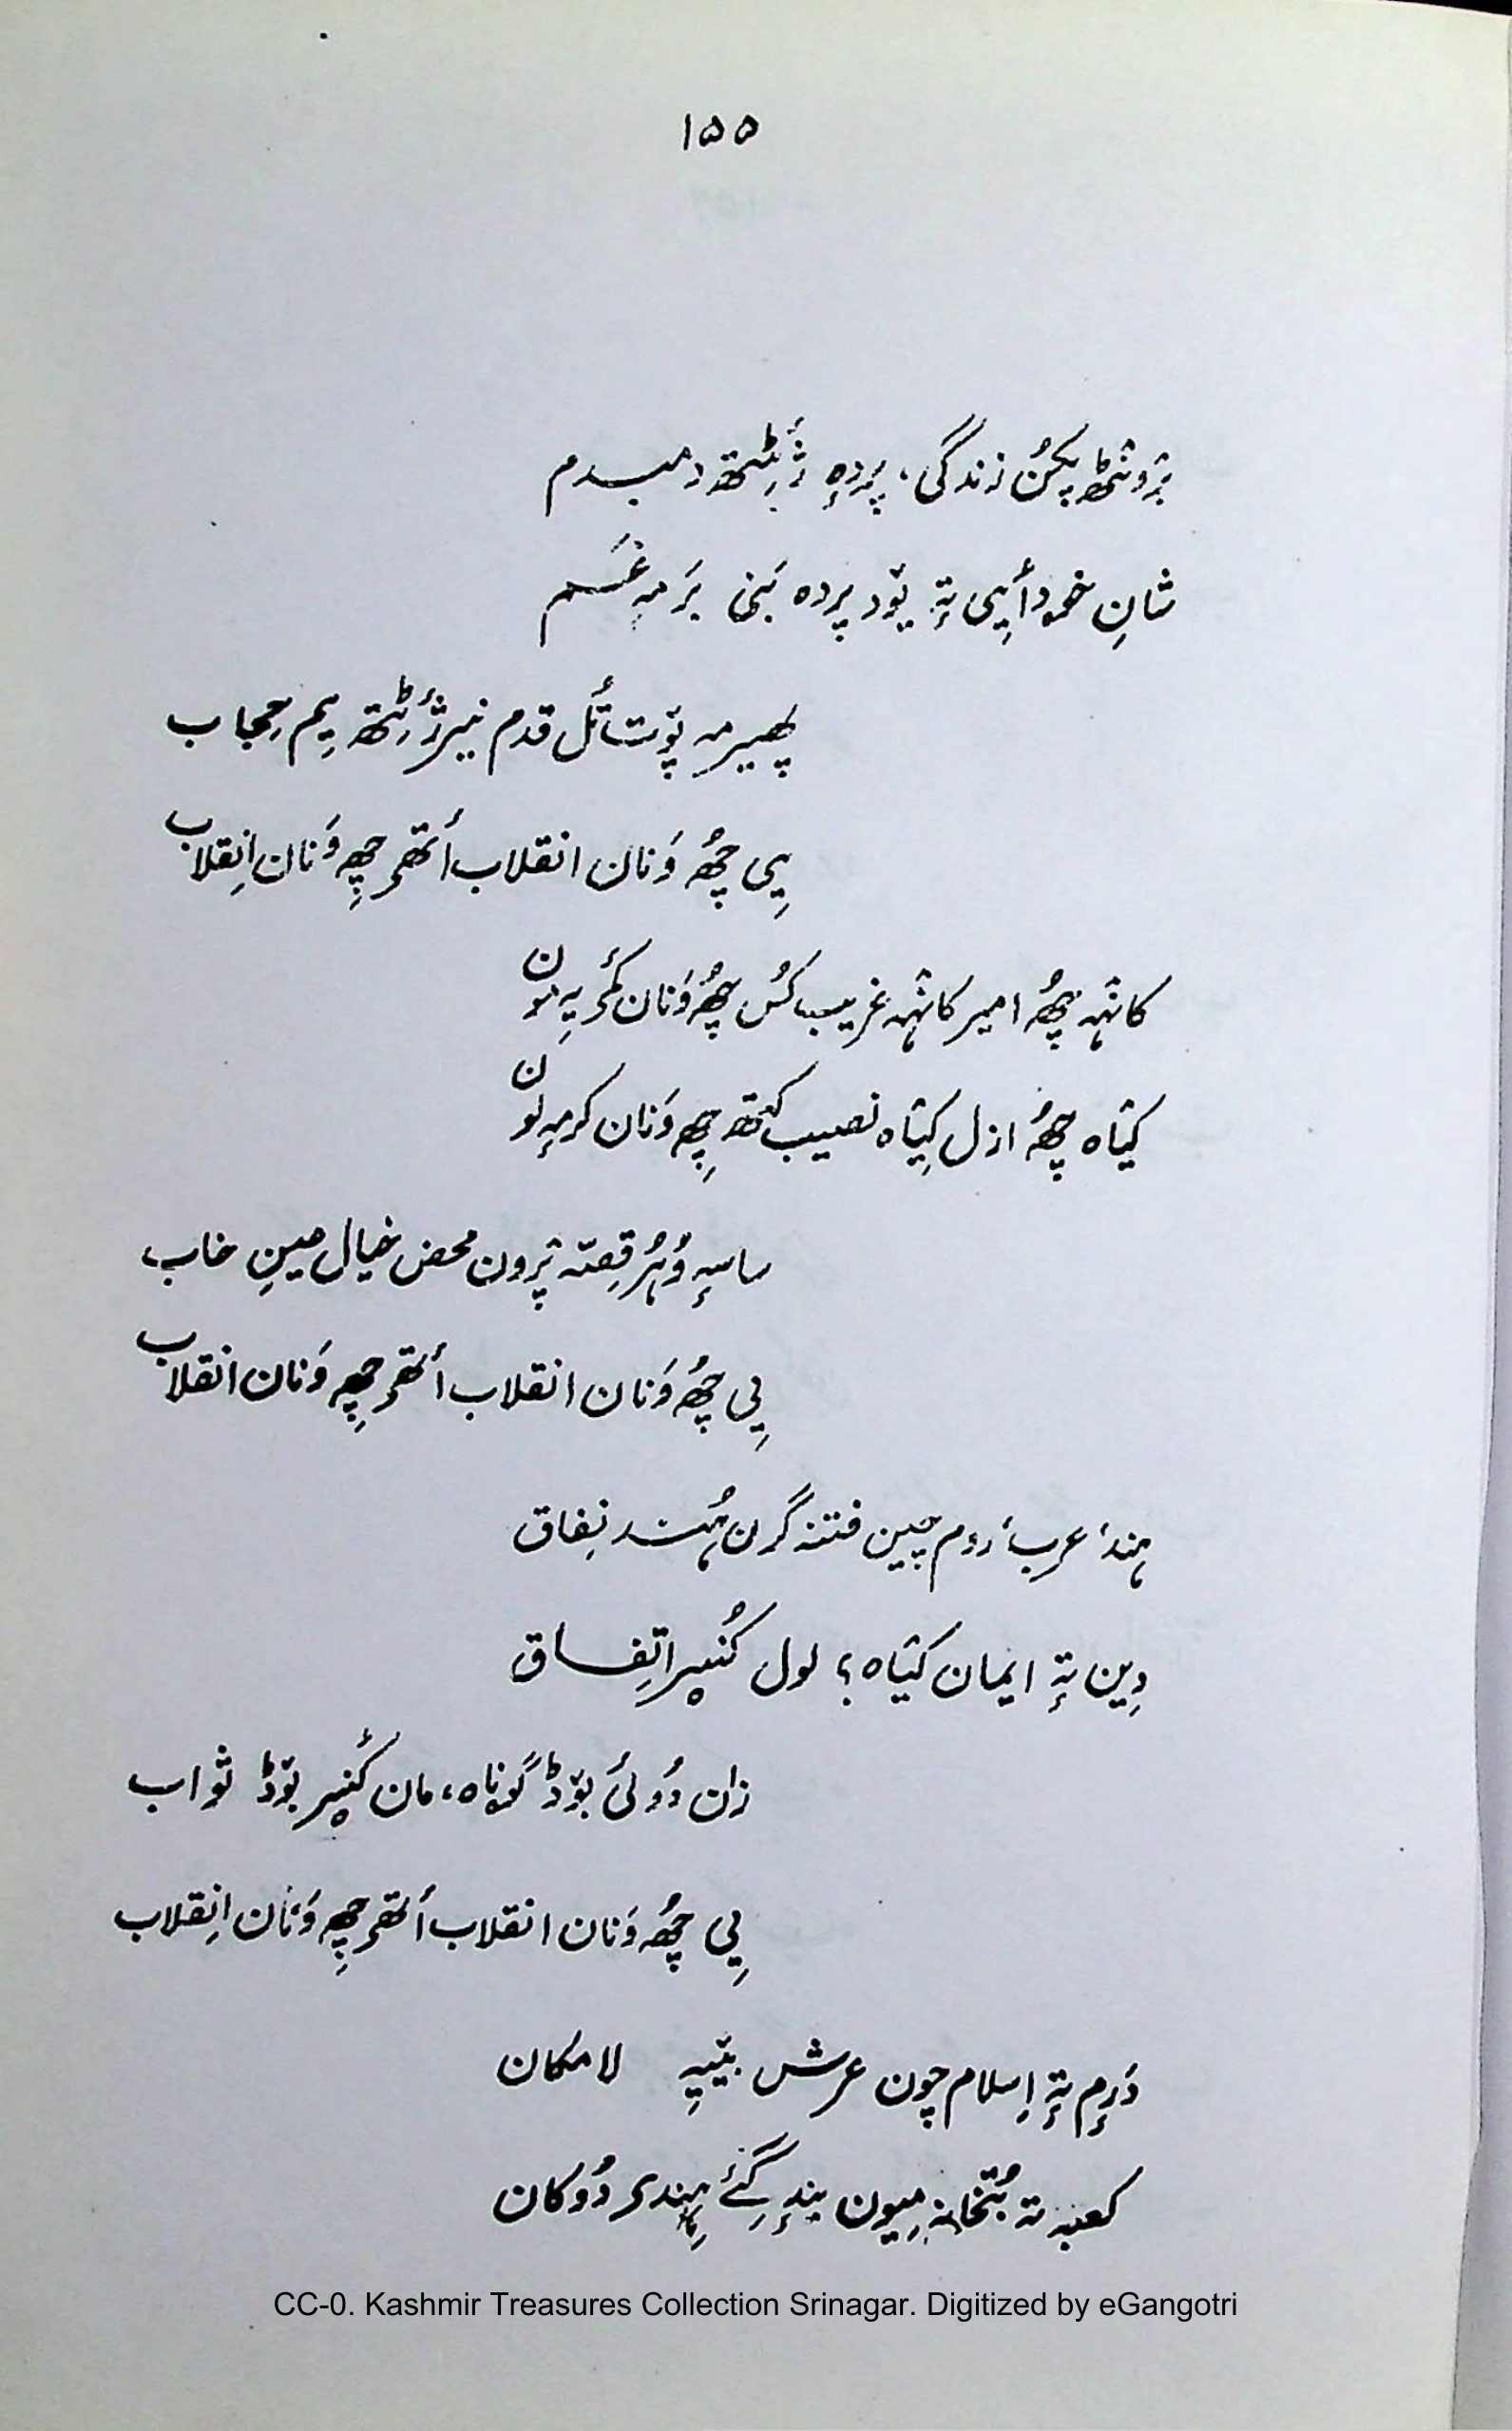 ۱۵۵
بْرونٹھ پکُن زندگی، پردہٕ ژٔٹِتھ دمبدم
شانِ خودأیی تہٕ یۆد پردہ بَنی بَر مہ غَم
پھیر مہ پۆت تُل قدم نیر ژٔٹِتھ یِم حِجاب
یِی چھُ وَنان انقلاب أتھۍ چھِ وَنان اِنقلاب
کانٛہہ چھُ امیر کانٛہہ غریب کُس چھُ وَنان کٔمۍ یِہ ہون
کیْاہ چھُ ازل کیْاہ نصیب کَتھ چھِ وَنان کرمہٕ لون
ساسہٕ وُہُر قِصّہ پْرون محض خیال مینِ خاب
یِی چھُ وَنان انقلاب أتھۍ چھِ وَنان انقلاب
ہند، عرب، روم چین فتنہ گَرن ہُند نِفاق
دِین تہٕ ایمان کیْاہ؟ لول کُنیر اتِفاق
زان دُوئی بۆڈ گۄناہ، مان کُنیر بۆڈ ثواب
یِی چھُ وَنان انقلاب أتھۍ چھِ وَنان اِنقلاب
دَرٕم تہٕ اِسلام چون عرش بیْیہِ لامکان
کعبہ تہ بُتخانہ میون بندٕ گَئے ہِندۍ دُوکان
CC-0. Kashmir Treasures Collection Srinagar. Digitized by eGangotri